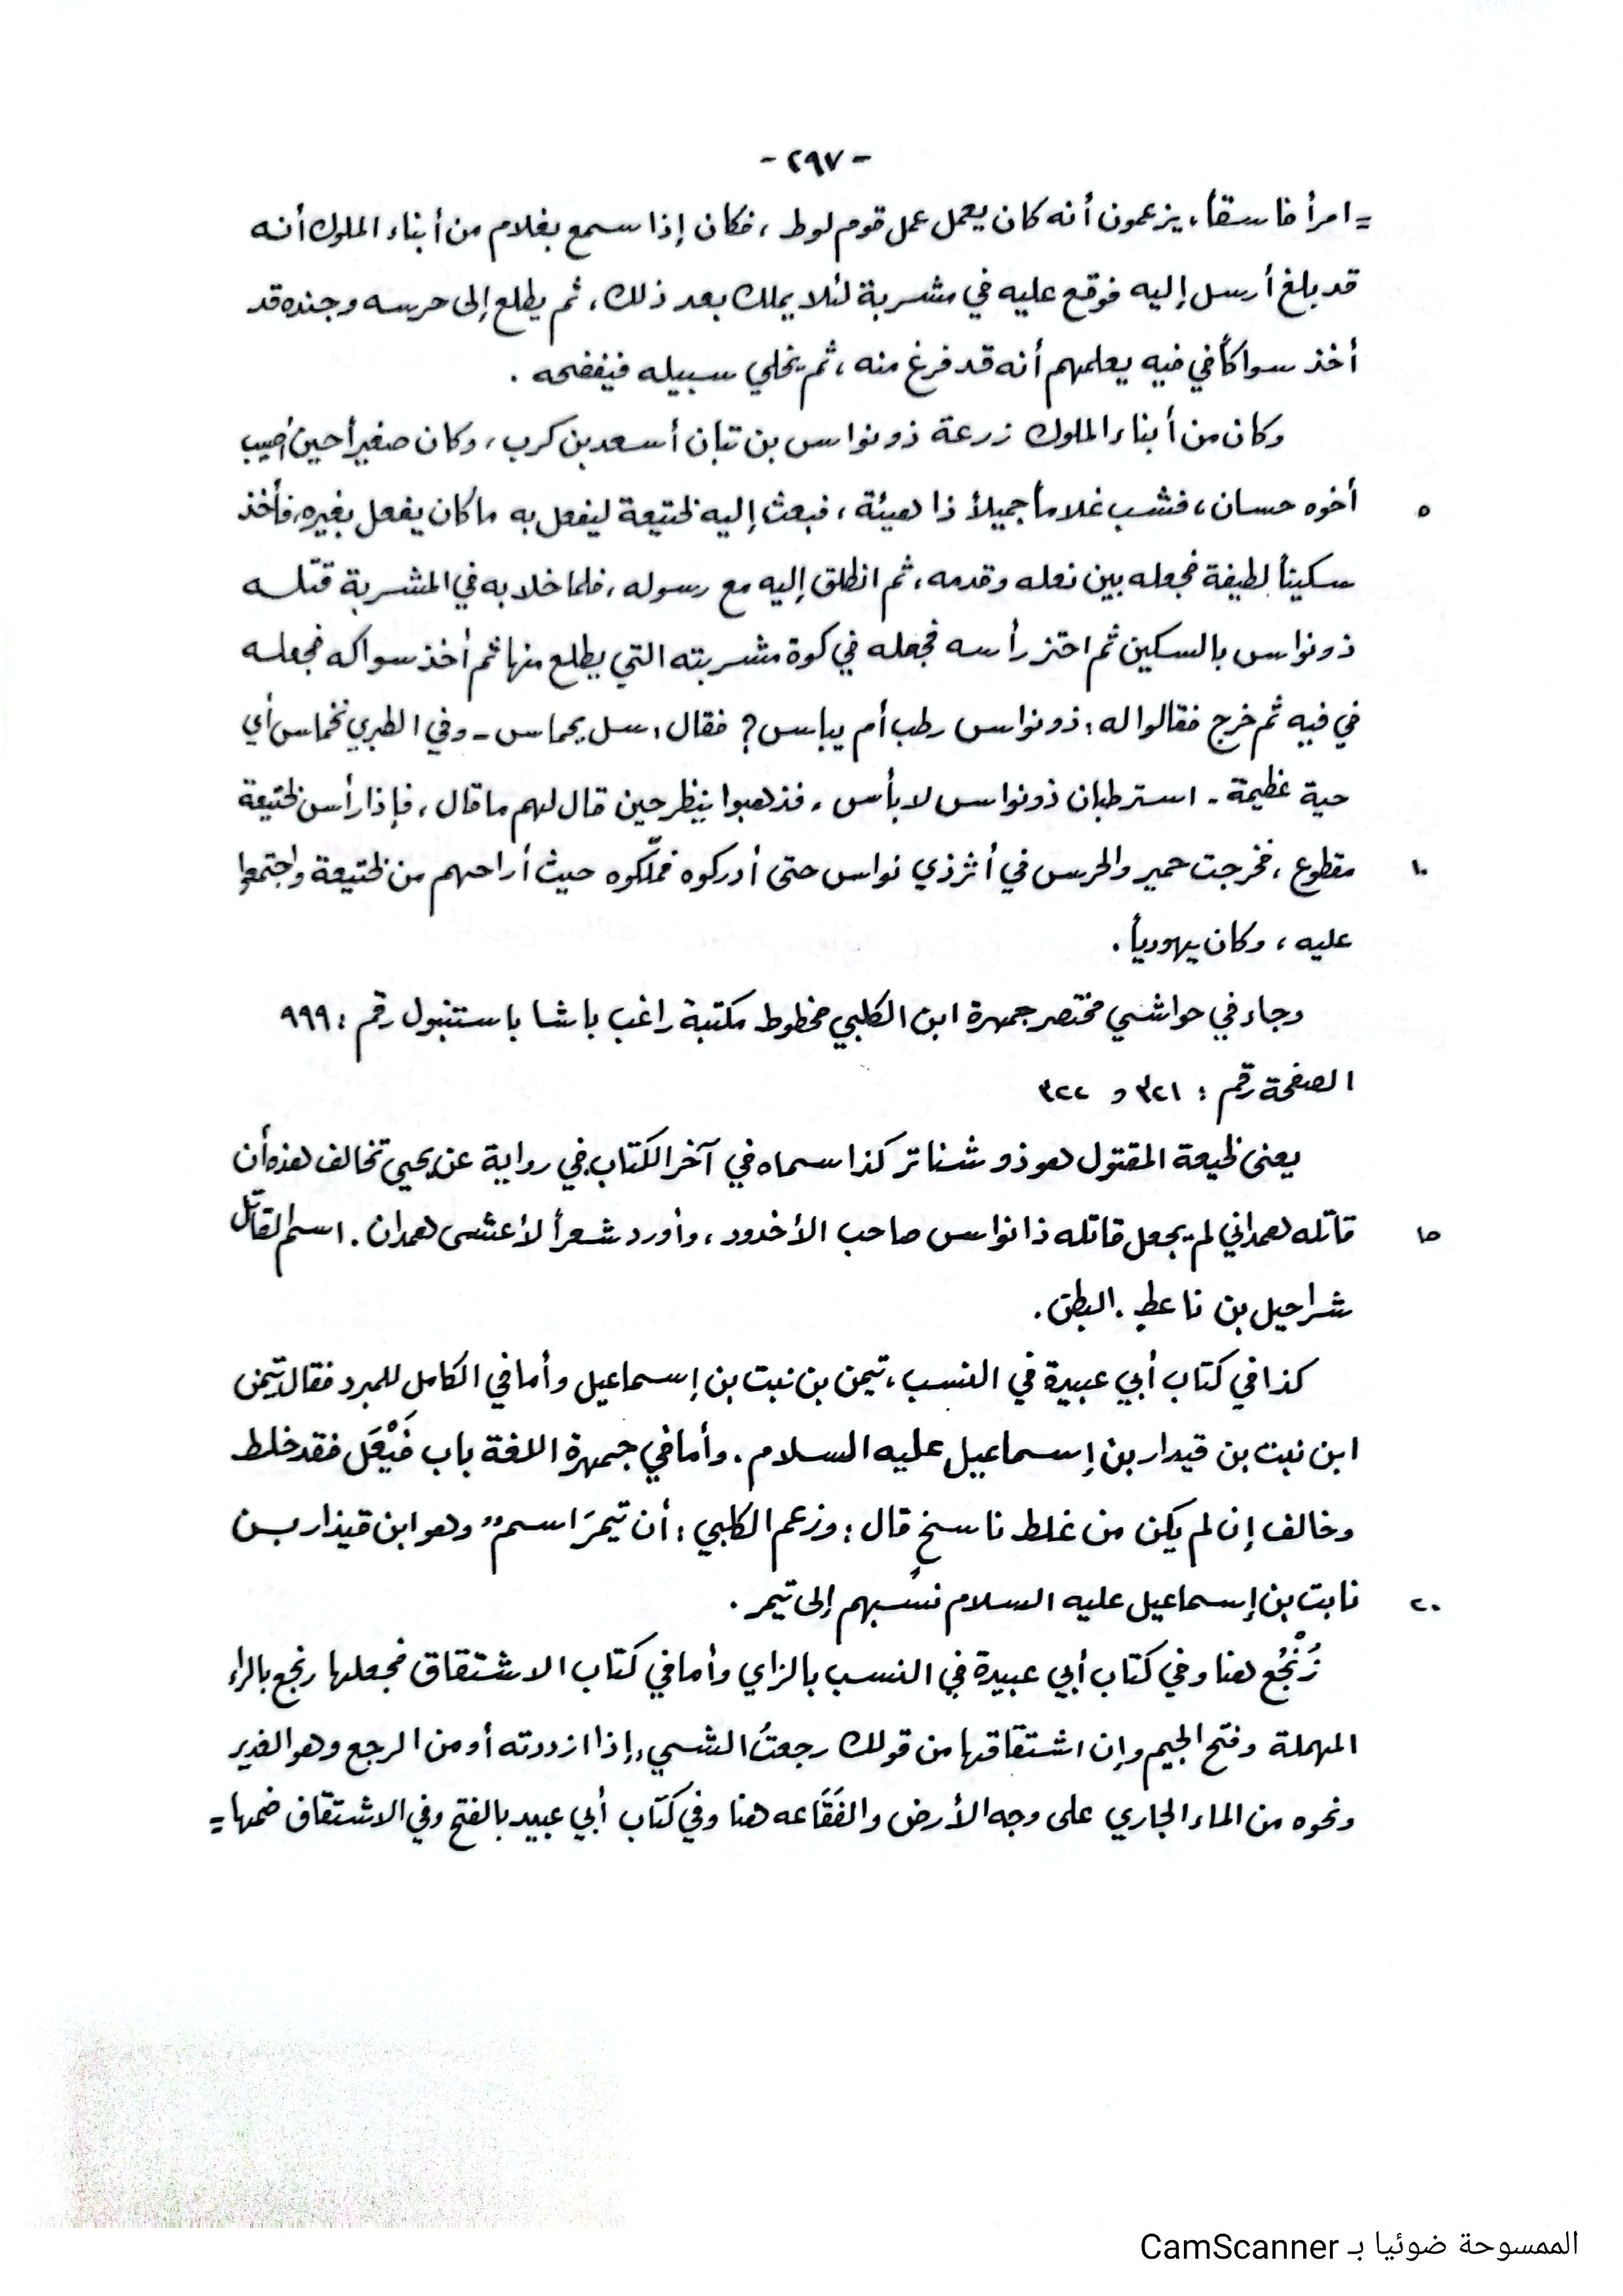 - ٢٩٧ -
= امرأ فاسقاً، يزعمون أنه كان يعمل عمل قوم لوط ، فكان إذا سمع بغلام من أبناء الملوك أنه
قد بلغ أرسل إليه فوقع عليه في مشربة لئلا يملك بعد ذلك ، ثم يطلع إلى حرسه وجنده قد
أخذ سواكاً في فيه يعلمهم أنه قد فرغ منه ، ثم يخلي سبيله فيفضحه .
وكان من أبناء الملوك زرعة ذو نواس بن تبان أسعد بن كرب ، وكان صغيراً حين أصيب
٥ أخوه حسان ، فشب غلاماً جميلاً ذا هيئة ، فبعث إليه لختيعة ليفعل به ما كان يفعل بغيره، فأخذ
سكيناً لطيفة فجعله بين نعله وقدمه ، ثم انطلق إليه مع رسوله ، فلما خلا به في المشربة قتله
ذو نواس بالسكين ثم احتز رأسه فجعله في كوة مشربته التي يطلع منها ثم أخذ سواكه فجعله
في فيه ثم خرج فقالوا له : ذو نواس رطب أم يباس ؟ فقال : سل يحماس - وفي الطبري نخماس أي
حية عظيمة - استرطبان ذو نواس لا بأس ، فذهبوا ينظر حين قال لهم ما قال ، فإذا رأس لختيعة
١٠ مقطوع ، فخرجت حمير والحرس في أثر ذي نواس حتى أدركوه فملّكوه حيث أراحهم من لختيعة واجتمعوا
عليه ، وكان يهودياً .
وجاء في حواشي مختصر جمهرة ابن الكلبي مخطوط مكتبة راغب باشا باستنبول رقم : ٩٩٩
الصفحة رقم : ٣٢١ و ٣٢٢
يعنى لخيعة المقتول هو ذو شناتر كذا سماه في آخر الكتاب في رواية عن يحيى تخالف هذه أن
١٥ قاتله همداني لم يجعل قاتله ذا نواس صاحب الأخدود ، وأورد شعراً لأعشى همدان . اسم القاتل
شراحيل بن ناعط . البطن .
كذا في كتاب أبي عبيدة في النسب ، تيمن بن نبت بن إسماعيل وأما في الكامل للمبرد فقال تيمن
ابن نبت بن قيدار بن إسماعيل عليه السلام . وأما في جمهرة اللغة باب فَيْعَل فقد خلط
وخالف إن لم يكن من غلط ناسخٍ قال : وزعم الكلبي : أن تيمرَ اسم" وهو ابن قيذار بن
٢٠ نابت بن إسماعيل عليه السلام نسبهم إلى تيمر .
زُنْجُع هنا وفي كتاب أبي عبيدة في النسب بالزاي وأما في كتاب الاشتقاق فجعلها رنجع بالراء
المهملة وفتح الجيم وإن اشتقاقها من قولك رجعتُ الشيء إذا ازددته أو من الرجع وهو الغدير
ونحوه من الماء الجاري على وجه الأرض والفَقَاعه هنا وفي كتاب أبي عبيد بالفتح وفي الاشتقاق ضمها =
الممسوحة ضوئيا بـ CamScanner